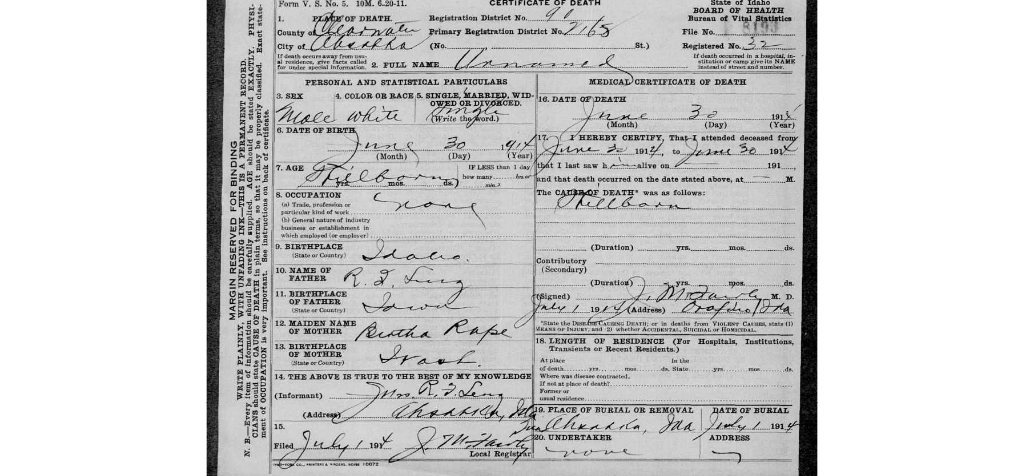 Form V. S. No. 5. 10M. 6-20-11.
CERTIFICATE OF DEATH
State of Idaho
BOARD OF HEALTH
Bureau of Vital Statistics
1. PLACE OF DEATH.
Registration District No. 90
County of Clearwater
Primary Registration District No. 2168
File No.
City of Ahsahka
(No. St.)
Registered No. 32
If death occurred away from usual residence, give facts called for under special information.
2. FULL NAME Unnamed
If death occurred in a hospital, institution or camp give its NAME instead of street and number.
PERSONAL AND STATISTICAL PARTICULARS
3. SEX Male
4. COLOR OR RACE white
5. SINGLE, MARRIED, WIDOWED OR DIVORCED.
Single
(Write the word.)
6. DATE OF BIRTH
June 30 1914
(Month) (Day) (Year)
7. AGE Stillborn
yrs. mos. ds.)
IF LESS than 1 day
how many hrs or
min.?
8. OCCUPATION none
(a) Trade, profession or
particular kind of work
(b) General nature of industry
business or establishment in
which employed (or employer)
9. BIRTHPLACE Idaho.
(State or Country)
10. NAME OF FATHER
11. BIRTHPLACE OF FATHER Iowa
(State or Country)
12. MAIDEN NAME OF MOTHER Bertha Rape
13. BIRTHPLACE OF MOTHER Wash.
(State or Country)
14. THE ABOVE IS TRUE TO THE BEST OF MY KNOWLEDGE
(Informant) Mrs. R.
(Address) Ahsahka, Ida
15.
Filed July 1 1914
Local Registrar
MEDICAL CERTIFICATE OF DEATH
16. DATE OF DEATH
June 30 1914
(Month) (Day) (Year)
17. I HEREBY CERTIFY, That I attended deceased from
June 30 1914, to June 30 1914
that I last saw him alive on 191
and that death occurred on the date stated above, at — M.
The CAUSE OF DEATH* was as follows:
Stillborn
(Duration) yrs. mos. ds.
Contributory
(Secondary)
(Duration) yrs. mos. ds.
(Signed) M. D.
July 1 1914 (Address) Orofino, Ida
*State the DISEASE CAUSING DEATH; or in deaths from VIOLENT CAUSES, state (1)
MEANS OF INJURY; and (2) whether ACCIDENTAL, SUICIDAL or HOMICIDAL.
18. LENGTH OF RESIDENCE (For Hospitals, Institutions,
Transients or Recent Residents.)
At place In the
of death yrs. mos. ds. State yrs. mos. ds.
Where was disease contracted,
If not at place of death?
Former or
usual residence
19. PLACE OF BURIAL OR REMOVAL
Ahsahka, Ida
DATE OF BURIAL
July 1 1914
20. UNDERTAKER
none
ADDRESS
MARGIN RESERVED FOR BINDING
WRITE PLAINLY, WITH UNFADING INK—THIS IS A PERMANENT RECORD.
N. B.—Every item of information should be carefully supplied. AGE should be stated EXACTLY. PHYSI-
CIANS should state CAUSE OF DEATH in plain terms, so that it may be properly classified. Exact state-
ment of OCCUPATION is very important. See instructions on back of certificate.